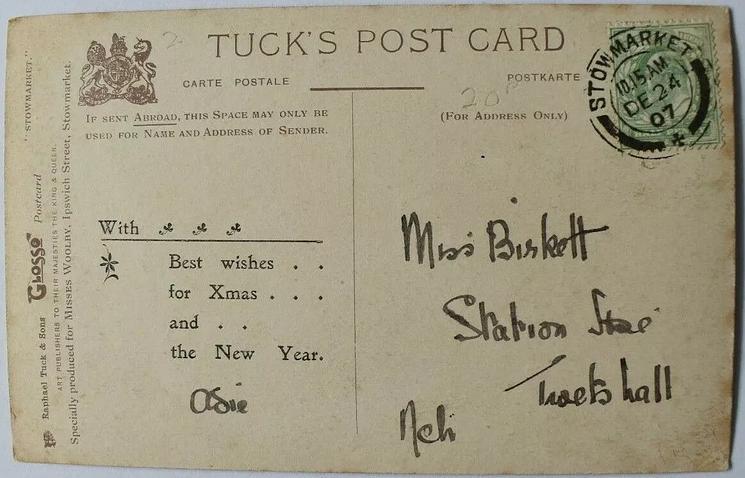 TUCK'S POST CARD
CARTE POSTALE
POSTKARTE
IF SENT ABROAD, THIS SPACE MAY ONLY BE
USED FOR NAME AND ADDRESS OF SENDER.
(FOR ADDRESS ONLY)
STOWMARKET
10.15 AM
DE 24
07
With
Best wishes . .
for Xmas . . .
and . .
the New Year.
Miss Birkett
Station
"STOWMARKET."
Raphael Tuck & Sons "GLOSSO" Postcard
ART PUBLISHERS TO THEIR MAJESTIES THE KING & QUEEN.
Specially produced for MISSES WOOLBY, Ipswich Street, Stowmarket.